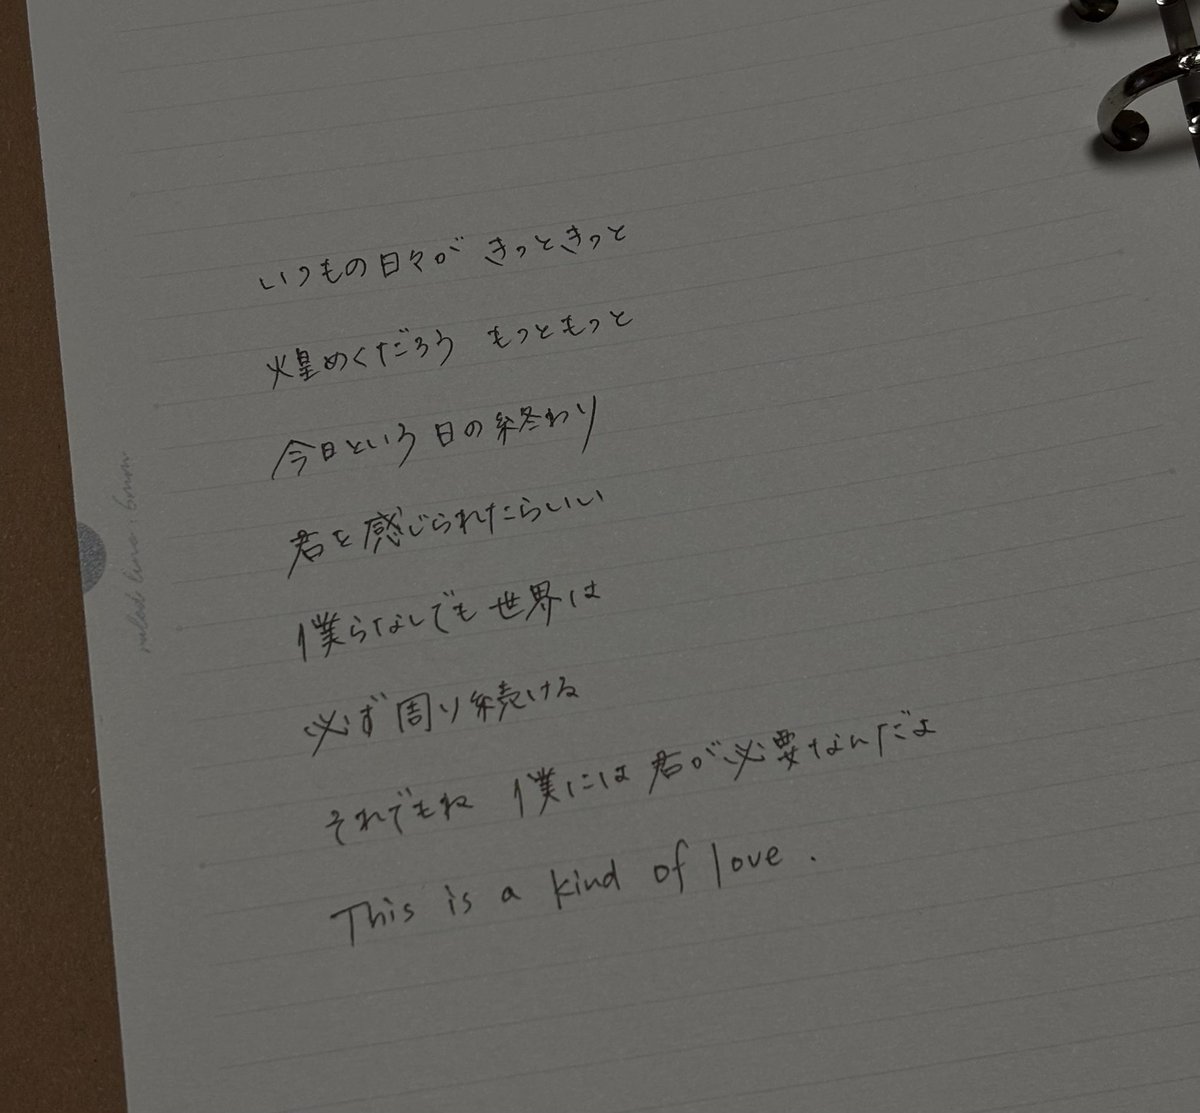 いつもの日々が きっときっと
煌めくだろう もっともっと
今日という 日の終わり
君を感じられたらいい
僕らなしでも世界は
必ず周り続ける
それでもね 僕には君が必要なんだよ
This is a kind of love.
ruled line : 6mm